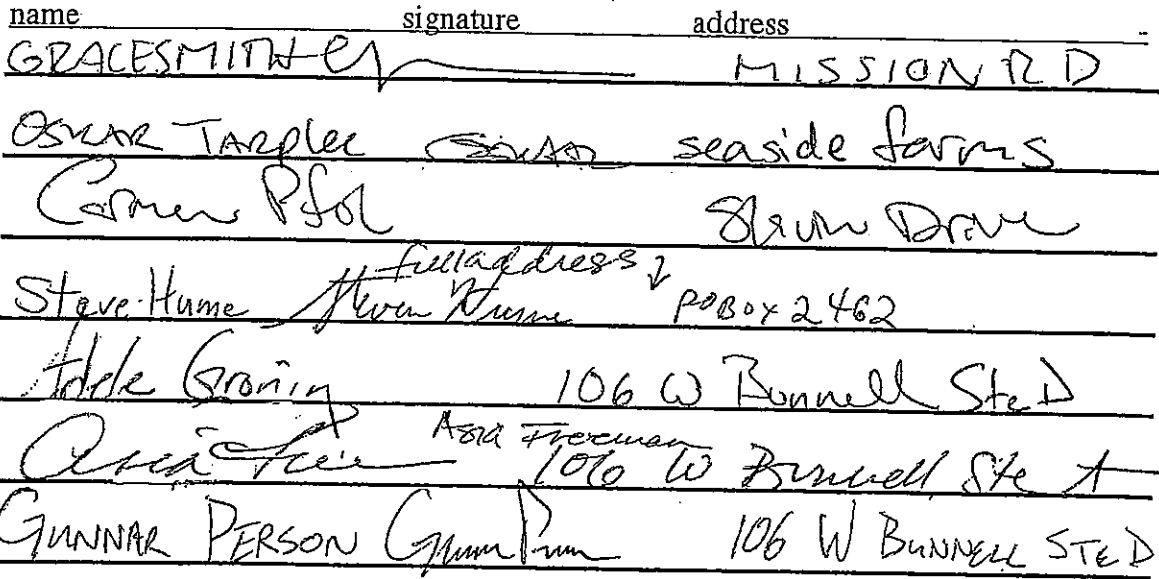 name signature address
GRACE SMITH MISSION RD
OSKAR TARPLEE OSKAR seaside farms
Carmen Pfol Drive
full address ↓
Steve Hume Steven Hume PO BOX 2462
Adele Groning 106 W Bunnell Ste D
Asia Freeman
106 W Bunnell Ste A
GUNNAR PERSON 106 W BUNNELL STE D